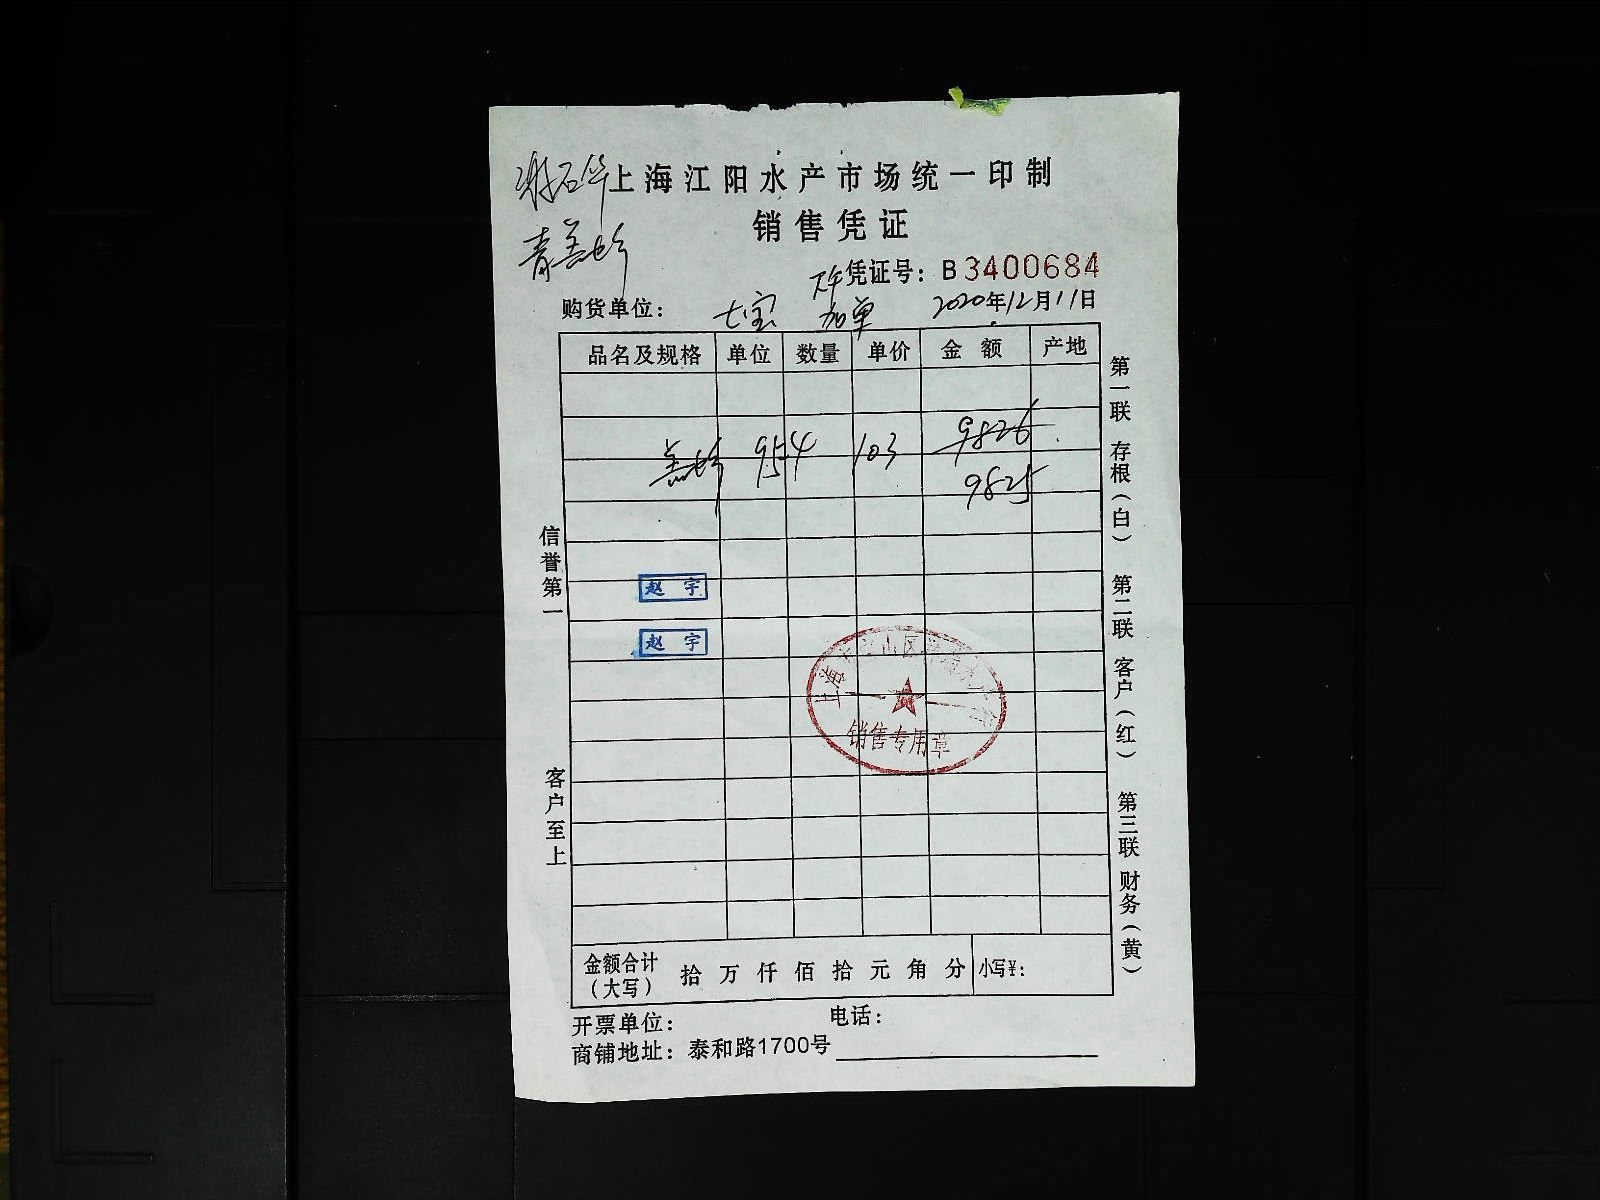 上海江阳水产市场统一印制
销售凭证
凭证号：B3400684
购货单位： 七宝 加单 2020年12月11日
品名及规格 单位 数量 单价 金额 产地
954 103 9826
9825
信誉第一
赵宇
赵宇
销售专用章
客户至上
第一联 存根（白） 第二联 客户（红） 第三联 财务（黄）
金额合计（大写） 拾 万 仟 佰 拾 元 角 分 小写¥：
开票单位： 电话：
商铺地址：泰和路1700号